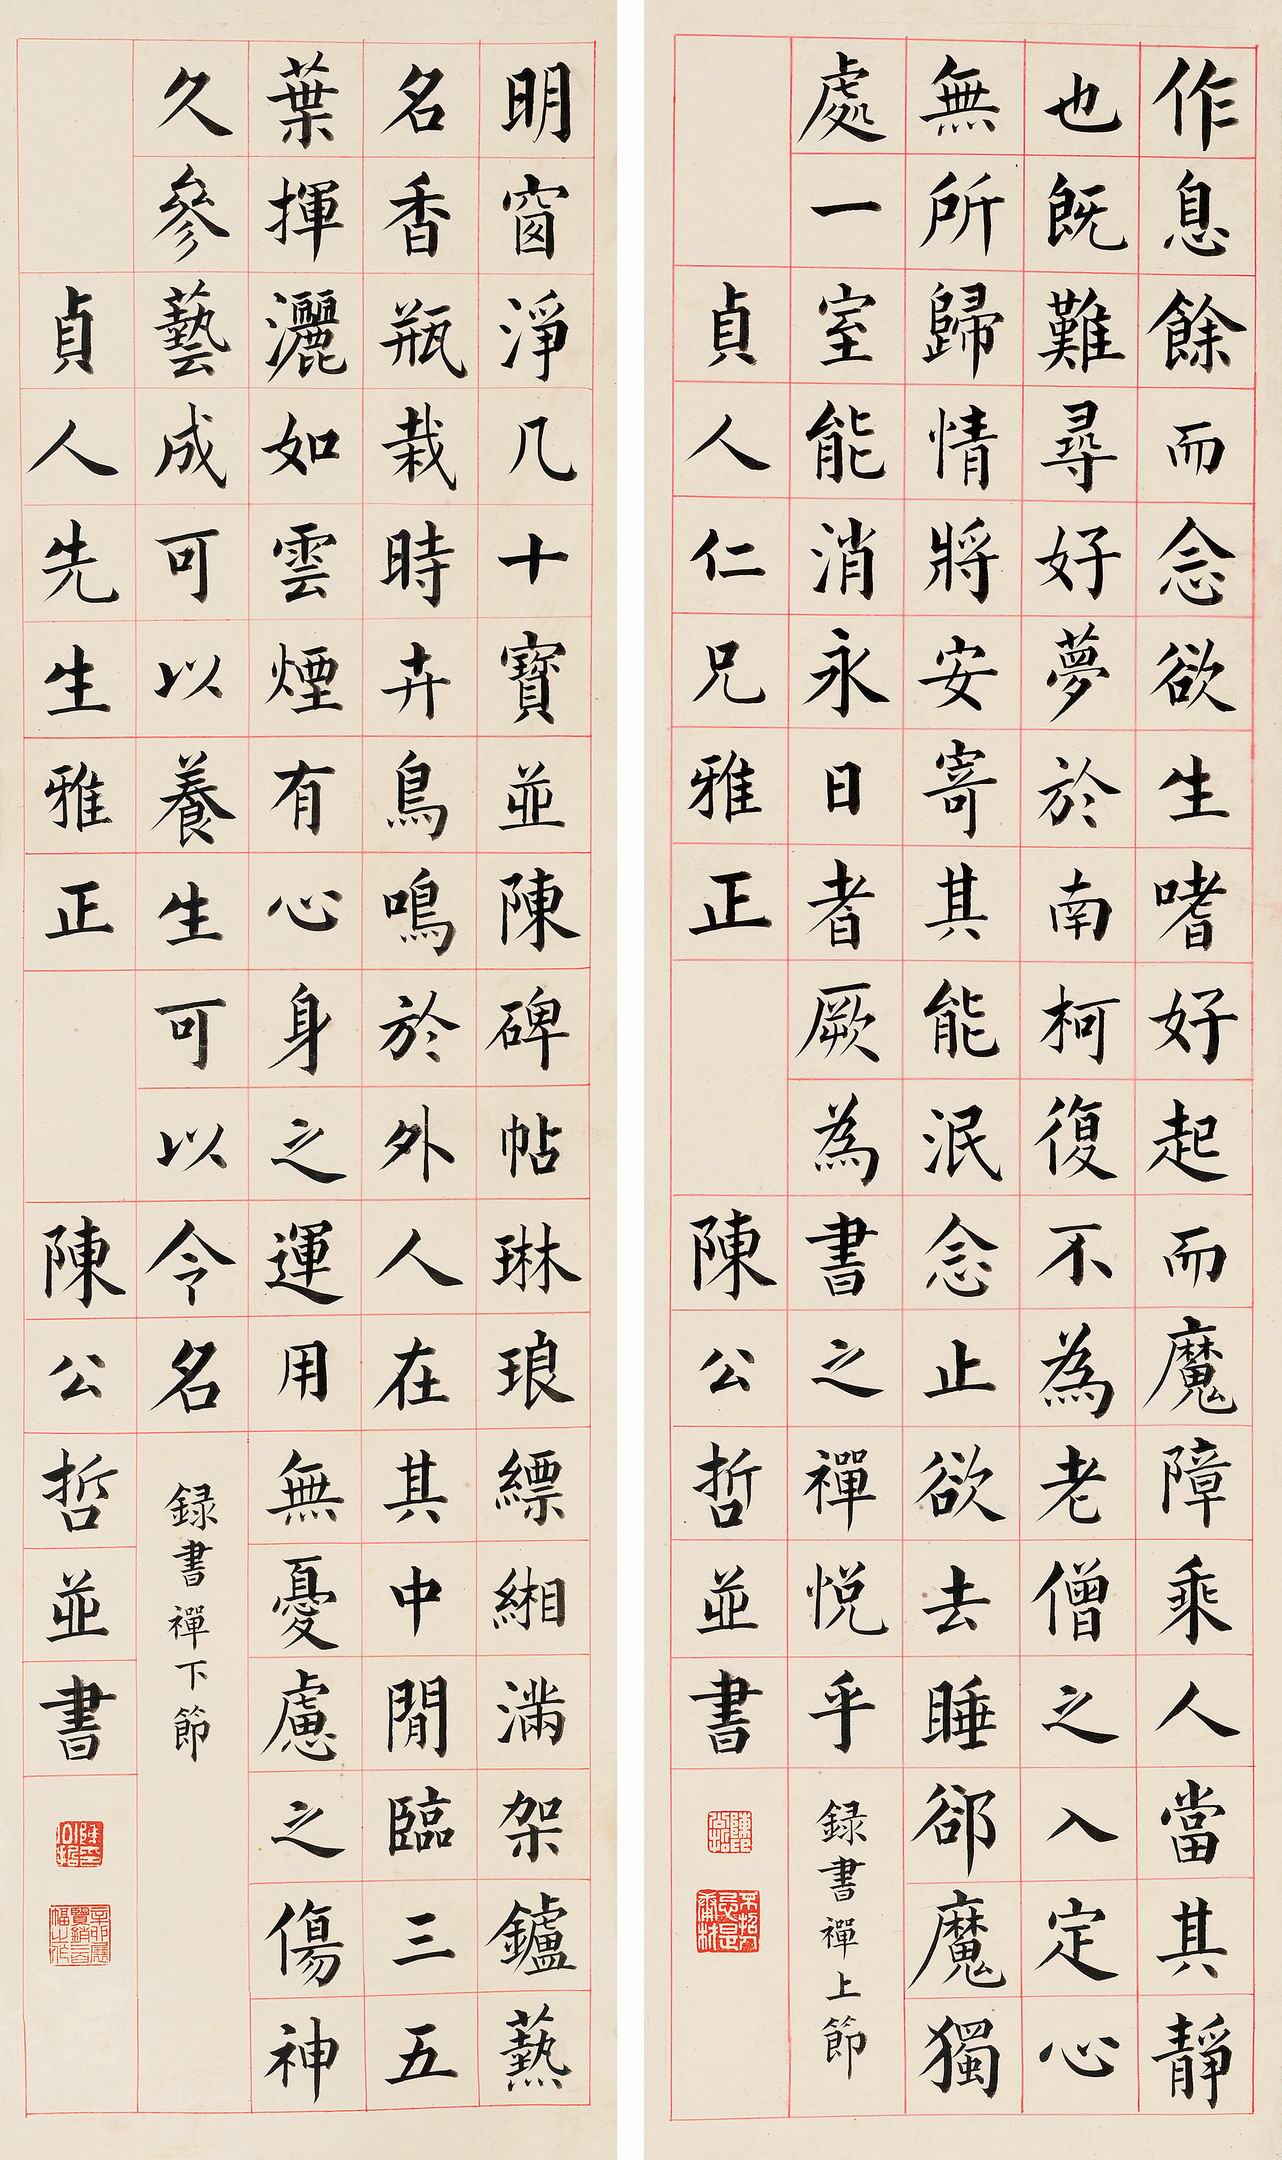 作息餘而念欲生嗜好起而魔障乘人當其靜
也既難尋好夢於南柯復不為老僧之入定心
無所歸情將安寄其能泯念止欲去睡郤魔獨
處一室能消永日者厥為書之禪悅乎
録書禪上節
貞人仁兄雅正
陳公哲並書
明窗淨几十寶並陳碑帖琳琅縹緗滿架鑪爇
名香瓶栽時卉鳥鳴於外人在其中閒臨三五
葉揮灑如雲煙有心身之運用無憂慮之傷神
久參藝成可以養生可以令名
録書禪下節
貞人先生雅正
陳公哲並書